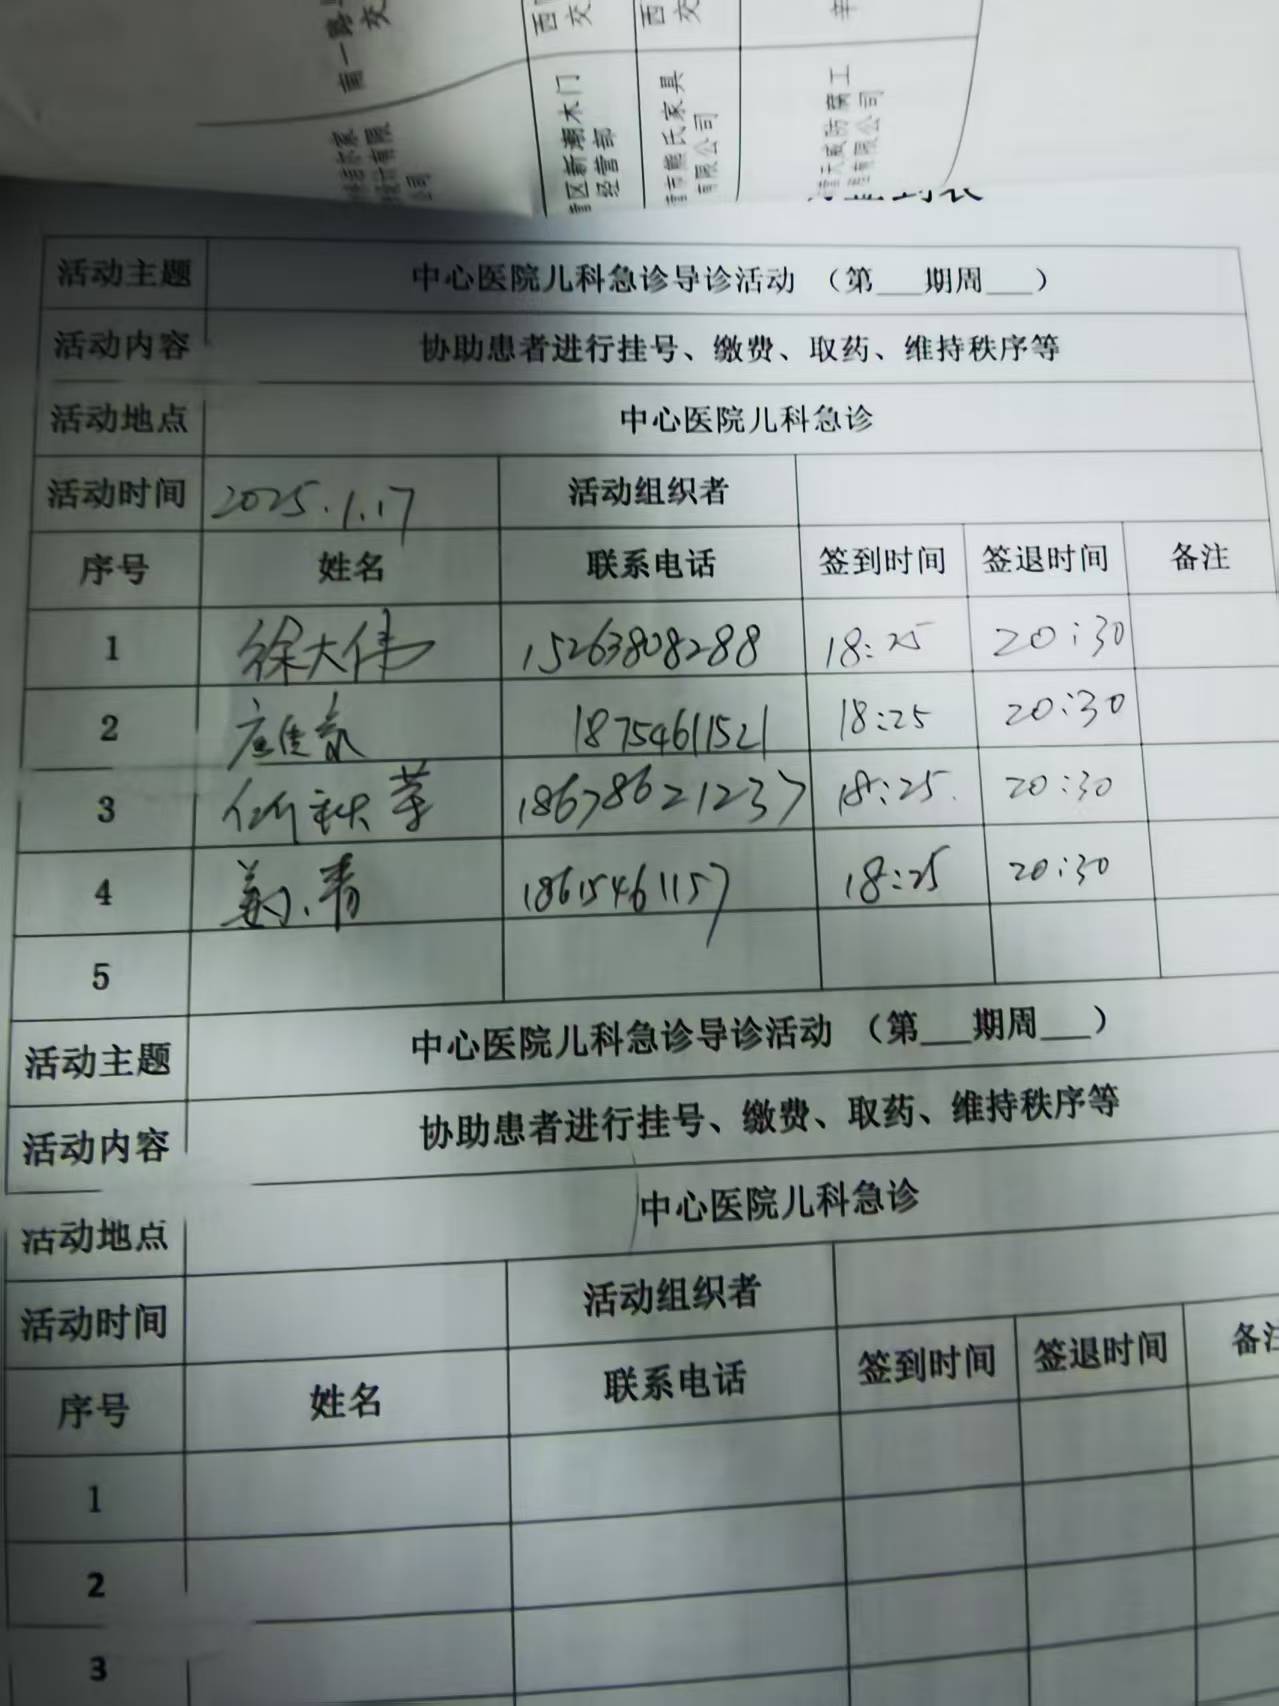 西 交
西 交
南一路
区新潮木门
经营部
市熊氏家具
有限公司
天威防腐工
有限公司
活动主题 中心医院儿科急诊导诊活动 （第___期周___）
活动内容 协助患者进行挂号、缴费、取药、维持秩序等
活动地点 中心医院儿科急诊
活动时间 2025.1.17 活动组织者
序号 姓名 联系电话 签到时间 签退时间 备注
1 徐大伟 15263808288 18:25 20:30
2 18754611521 18:25 20:30
3 秋苹 18678621237 18:25 20:30
4 青 18615461157 18:25 20:30
5
活动主题 中心医院儿科急诊导诊活动 （第___期周___）
活动内容 协助患者进行挂号、缴费、取药、维持秩序等
活动地点 中心医院儿科急诊
活动时间 活动组织者
序号 姓名 联系电话 签到时间 签退时间 备注
1
2
3